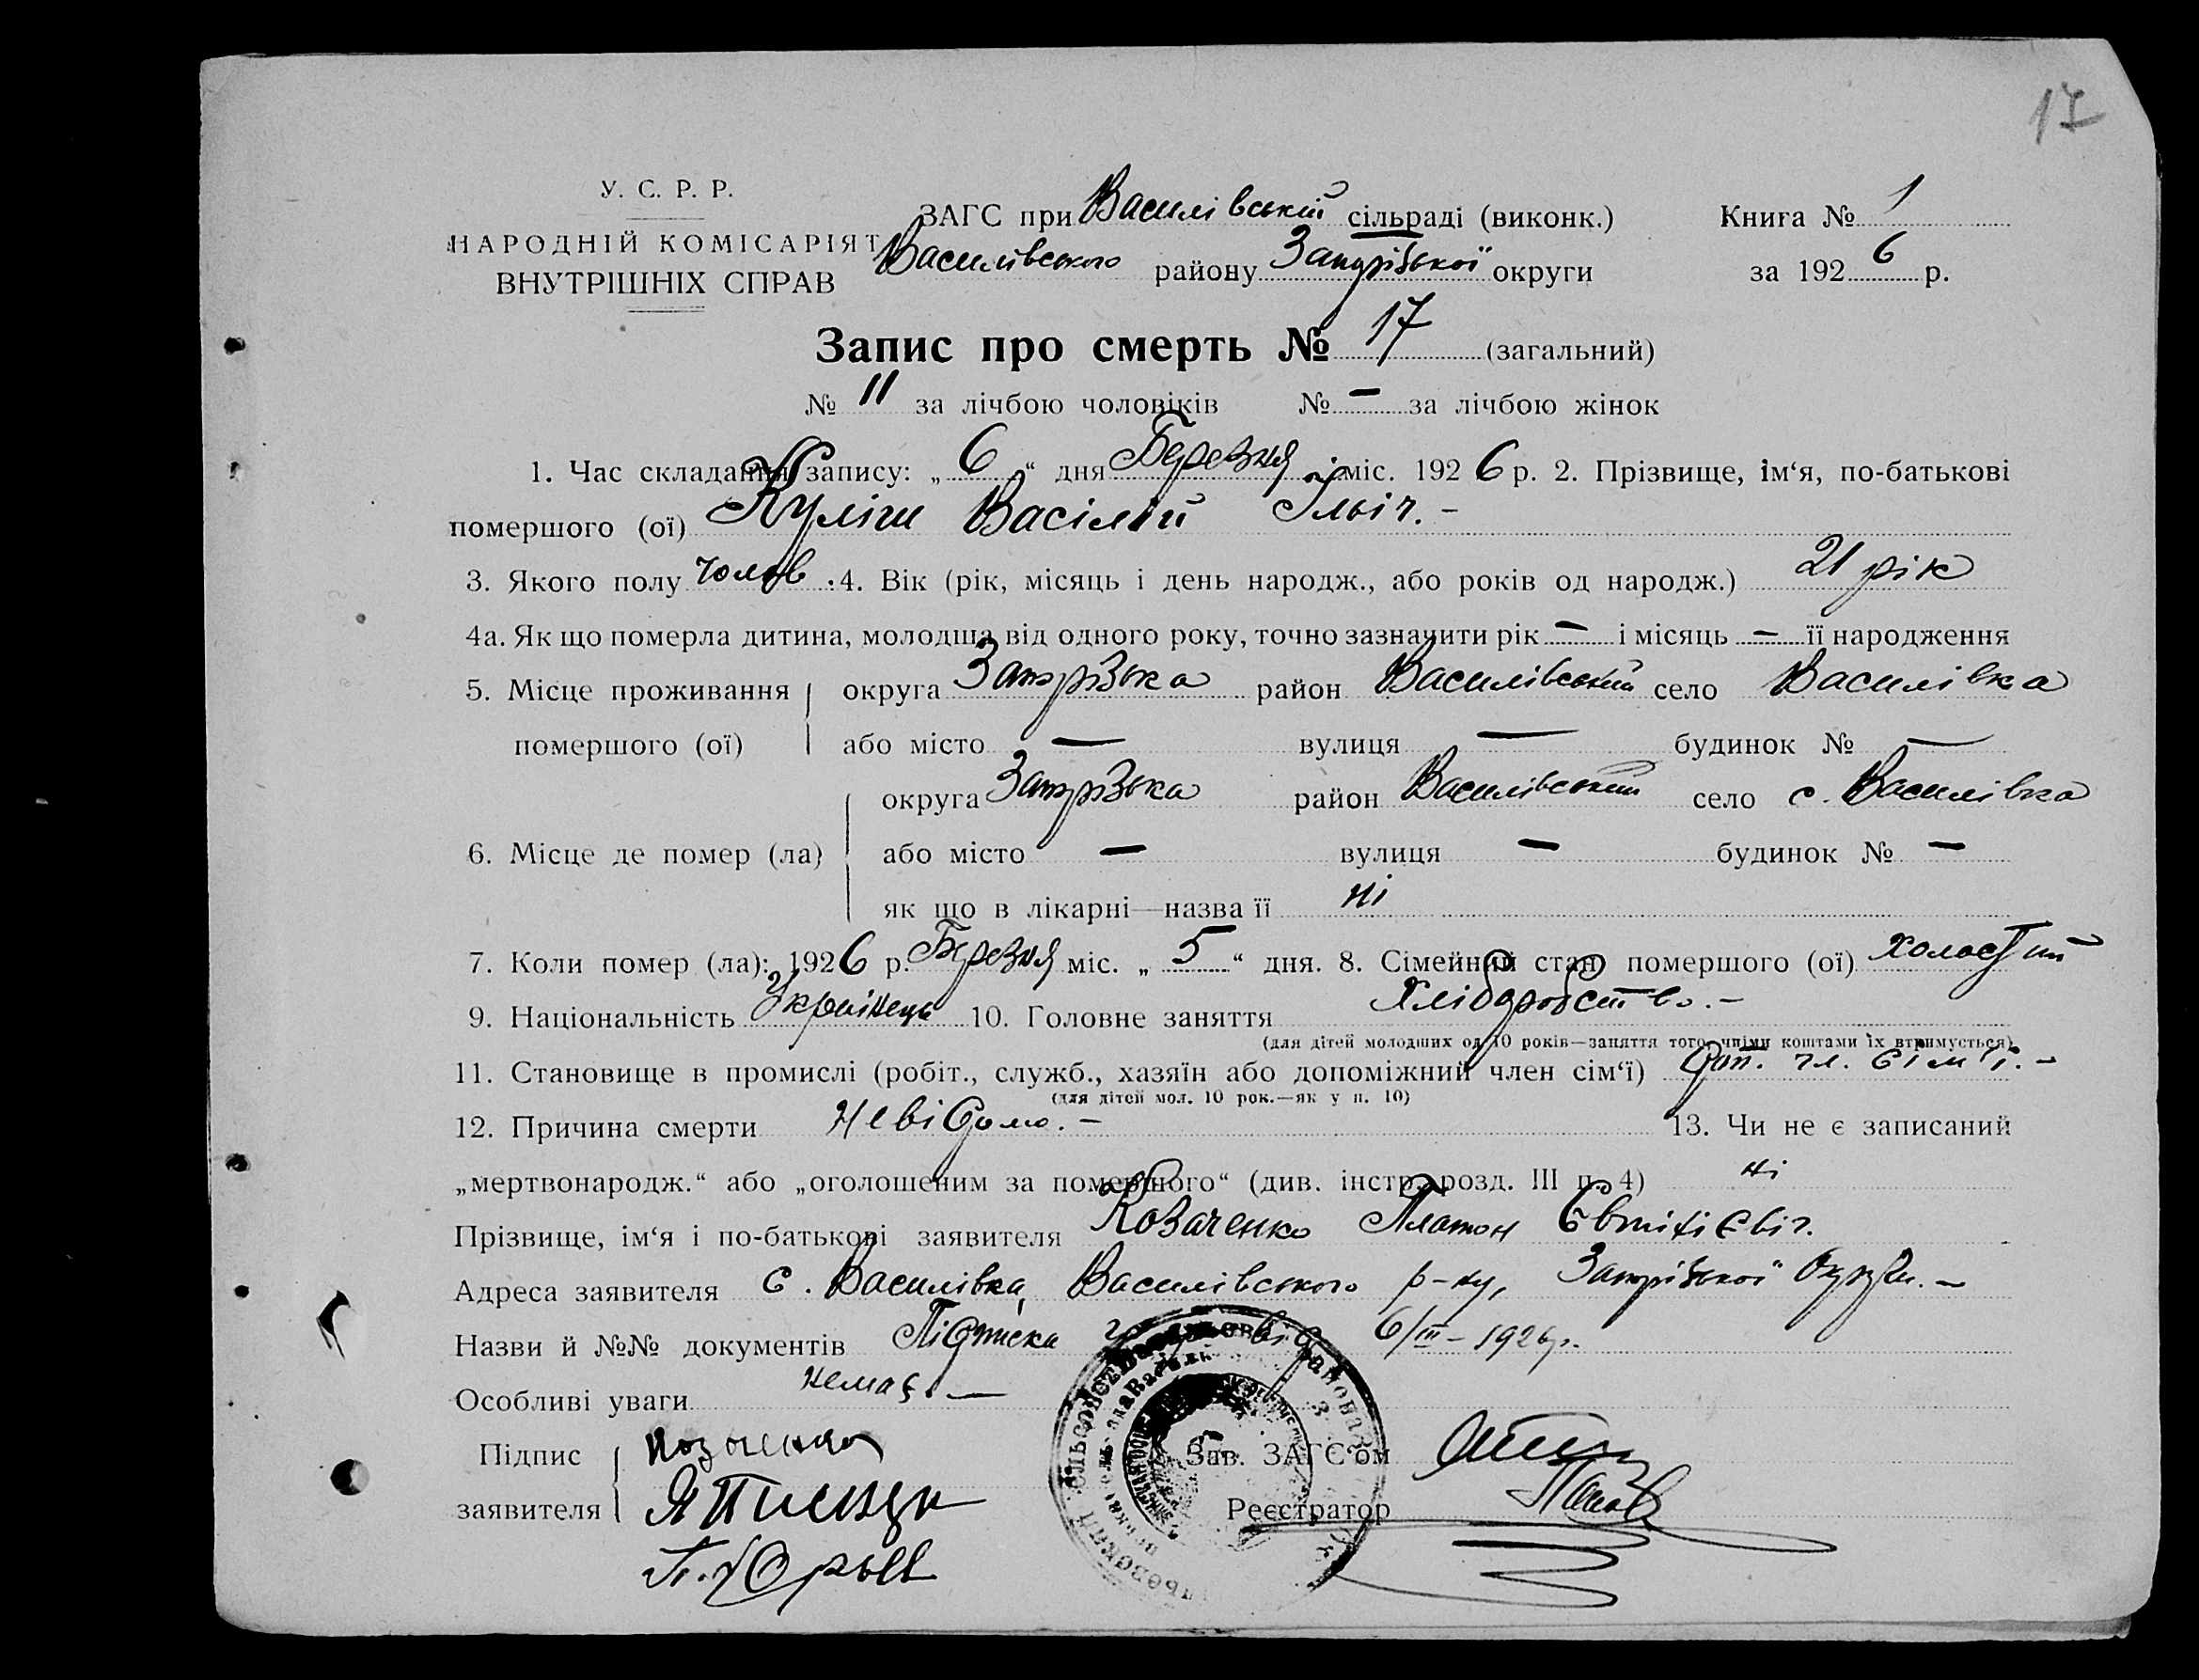 17
У. С. Р. Р.
НАРОДНІЙ КОМІСАРІЯТ
ВНУТРІШНІХ СПРАВ
ЗАГС при Василівській сільраді (виконк.) Книга № 1
Василівського району Запорізької округи за 192 6 р.
Запис про смерть № 17 (загальний)
№ 11 за лічбою чоловіків № — за лічбою жінок
1. Час складання запису: „ 6 “ дня Березня міс. 192 6 р. 2. Прізвище, ім‘я, по-батькові
помершого (ої) Куліш Васілій Ільіч. -
3. Якого полу чолов. 4. Вік (рік, місяць і день народж., або років од народж.) 21 рік
4а. Як що померла дитина, молодша від одного року, точно зазначити рік — і місяць — її народження
5. Місце проживання округа Запорізька район Василівський село Василівка
помершого (ої) або місто — вулиця — будинок № —
округа Запорізька район Василівський село с. Василівка
6. Місце де помер (ла) або місто — вулиця — будинок № —
як що в лікарні—назва її ні
7. Коли помер (ла): 192 6 р. Березня міс. „ 5 “ дня. 8. Сімейний стан помершого (ої) холостий
9. Національність Українець 10. Головне заняття Хліборобство. -
(для дітей молодших од 10 років—заняття того, чиїми коштами їх втримується)
11. Становище в промислі (робіт., служб., хазяїн або допоміжний член сім‘ї) Доп. чл. сім'ї. -
(для дітей мол. 10 рок.—як у п. 10)
12. Причина смерти Невідомо. - 13. Чи не є записаний
„мертвонародж.“ або „оголошеним за померлого“ (див. інстр. розд. III п. 4) ні
Прізвище, ім‘я і по-батькові заявителя Козаченко Платон
Адреса заявителя с. Василівка, Василівського р-ну, Запорізької Округи. -
Назви й №№ документів Підписка від 6/III - 1926р.
Особливі уваги немає. —
Підпис Козаченко Зав. ЗАГС‘ом
заявителя Реєстратор